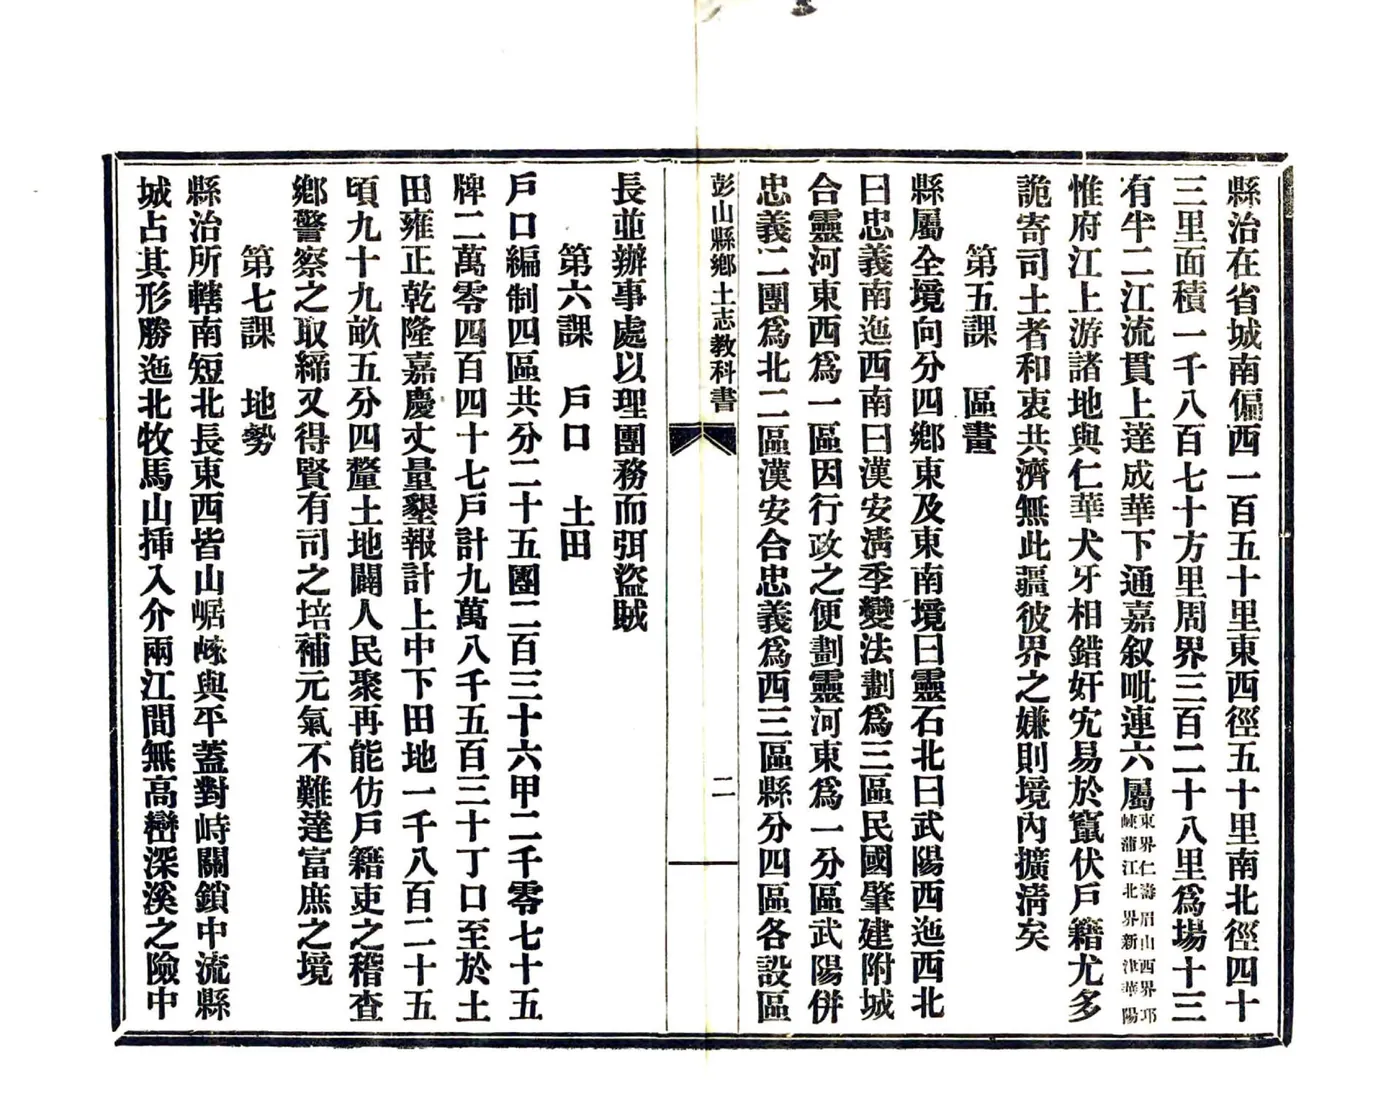 縣治在省城南偏西一百五十里東西徑五十里南北徑四十
三里面積一千八百七十方里周界三百二十八里爲場十三
有半二江流貫上達成華下通嘉叙毗連六屬東界仁壽眉山西界邛崍蒲江北界新津華陽
惟府江上游諸地與仁華犬牙相錯奸宄易於竄伏戶籍尤多
詭寄司土者和衷共濟無此疆彼界之嫌則境內擴清矣
第五課 區畫
縣屬全境向分四鄉東及東南境曰靈石北曰武陽西迤西北
曰忠義南迤西南曰漢安淸季變法劃爲三區民國肇建附城
合靈河東西爲一區因行政之便劃靈河東爲一分區武陽併
忠義二團爲北二區漢安合忠義爲西三區縣分四區各設區
彭山縣鄉土志教科書
二
長並辦事處以理團務而弭盜賊
第六課 戶口 土田
戶口編制四區共分二十五團二百三十六甲二千零七十五
牌二萬零四百四十七戶計九萬八千五百三十丁口至於土
田雍正乾隆嘉慶丈量墾報計上中下田地一千八百二十五
頃九十九畝五分四釐土地闢人民聚再能仿戶籍吏之稽查
鄉警察之取締又得賢有司之培補元氣不難達富庶之境
第七課 地勢
縣治所轄南短北長東西皆山崌崍與平蓋對峙關鎖中流縣
城占其形勝迤北牧馬山揷入介兩江間無高巒深溪之險中